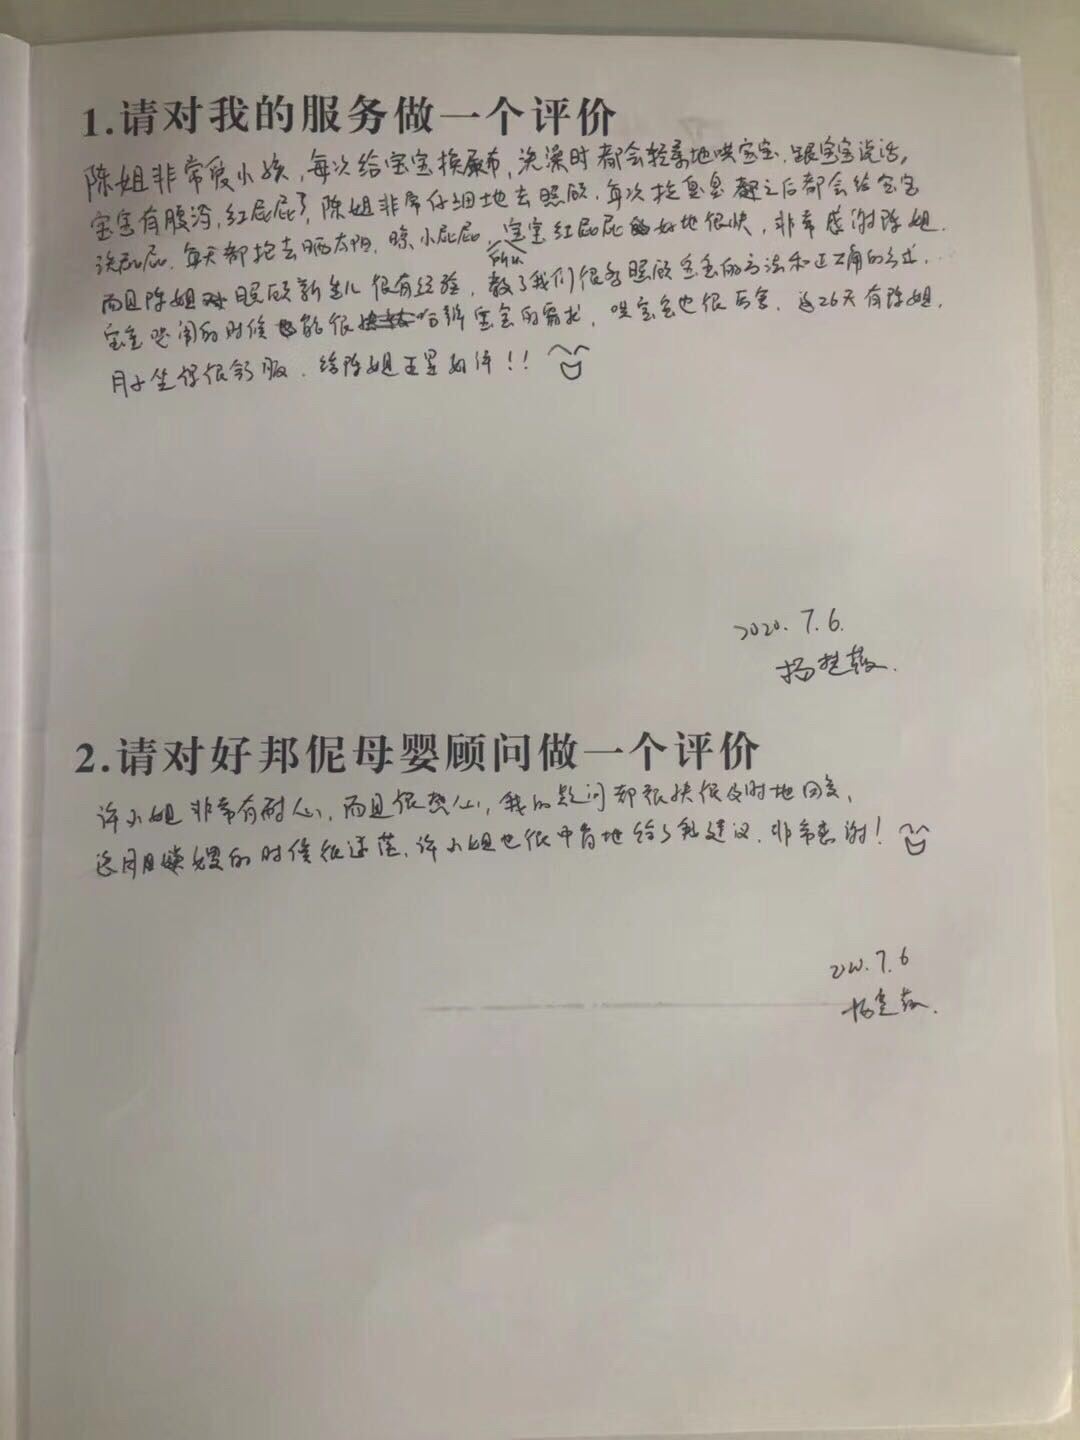 1.请对我的服务做一个评价
陈姐非常爱小孩，每次给宝宝换尿布，洗澡时都会轻柔地哄宝宝，跟宝宝说话，
宝宝有腹泻，红屁屁了，陈姐非常仔细地去照顾，每次拉臭臭之后都会给宝宝
洗屁屁，每天都抱去晒太阳，晾小屁屁，所以宝宝红屁屁好地很快，非常感谢陈姐．
而且陈姐对照顾新生儿很有经验，教了我们很多照顾宝宝的方法和正确的方式．
宝宝哭闹的时候能很 宝宝的需求，哄宝宝也很厉害，这26天有陈姐，
月子坐得很舒服．给陈姐五星好评！！
2020.7.6.
杨
2.请对好邦伲母婴顾问做一个评价
许小姐非常有耐心，而且很热心，我的疑问都很快很及时地回复，
选月嫂的时候很迷茫，许小姐也很中肯地给了我建议．非常感谢！
2020.7.6
杨